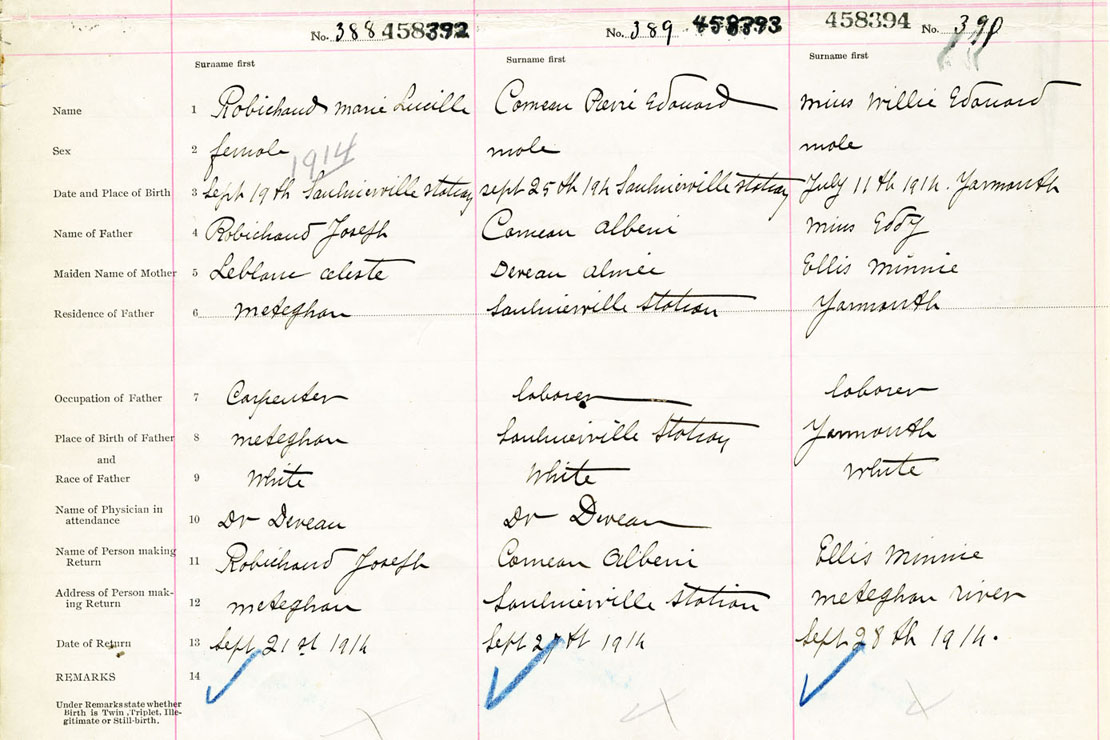 No. 388 458392 No. 389 458393 458394 No. 390
Surname first Surname first Surname first
Name 1 Robichaud marie Lucille Comeau Pierre Edouard mius Willie Edouard
Sex 2 female male male
1914
Date and Place of Birth 3 Sept 19th Saulnierville station sept 25th 1914 Saulnierville station July 11th 1914. Yarmouth
Name of Father 4 Robichaud Joseph Comeau Alberi mius Eddy
Maiden Name of Mother 5 Leblanc celeste Deveau almée Ellis Minnie
Residence of Father 6 meteghan Saulnierville station Yarmouth
Occupation of Father 7 Carpenter laborer laborer
Place of Birth of Father 8 meteghan Saulnierville station Yarmouth
and
Race of Father 9 White White White
Name of Physician in
attendance 10 Dr Deveau Dr Deveau
Name of Person making
Return 11 Robichaud Joseph Comeau Alberi Ellis Minnie
Address of Person mak-
ing Return 12 meteghan Saulnierville station meteghan river
Date of Return 13 Sept 21st 1914 Sept 27th 1914 Sept 28th 1914.
REMARKS 14
Under Remarks state whether
Birth is Twin, Triplet, Ille-
gitimate or Still-birth.